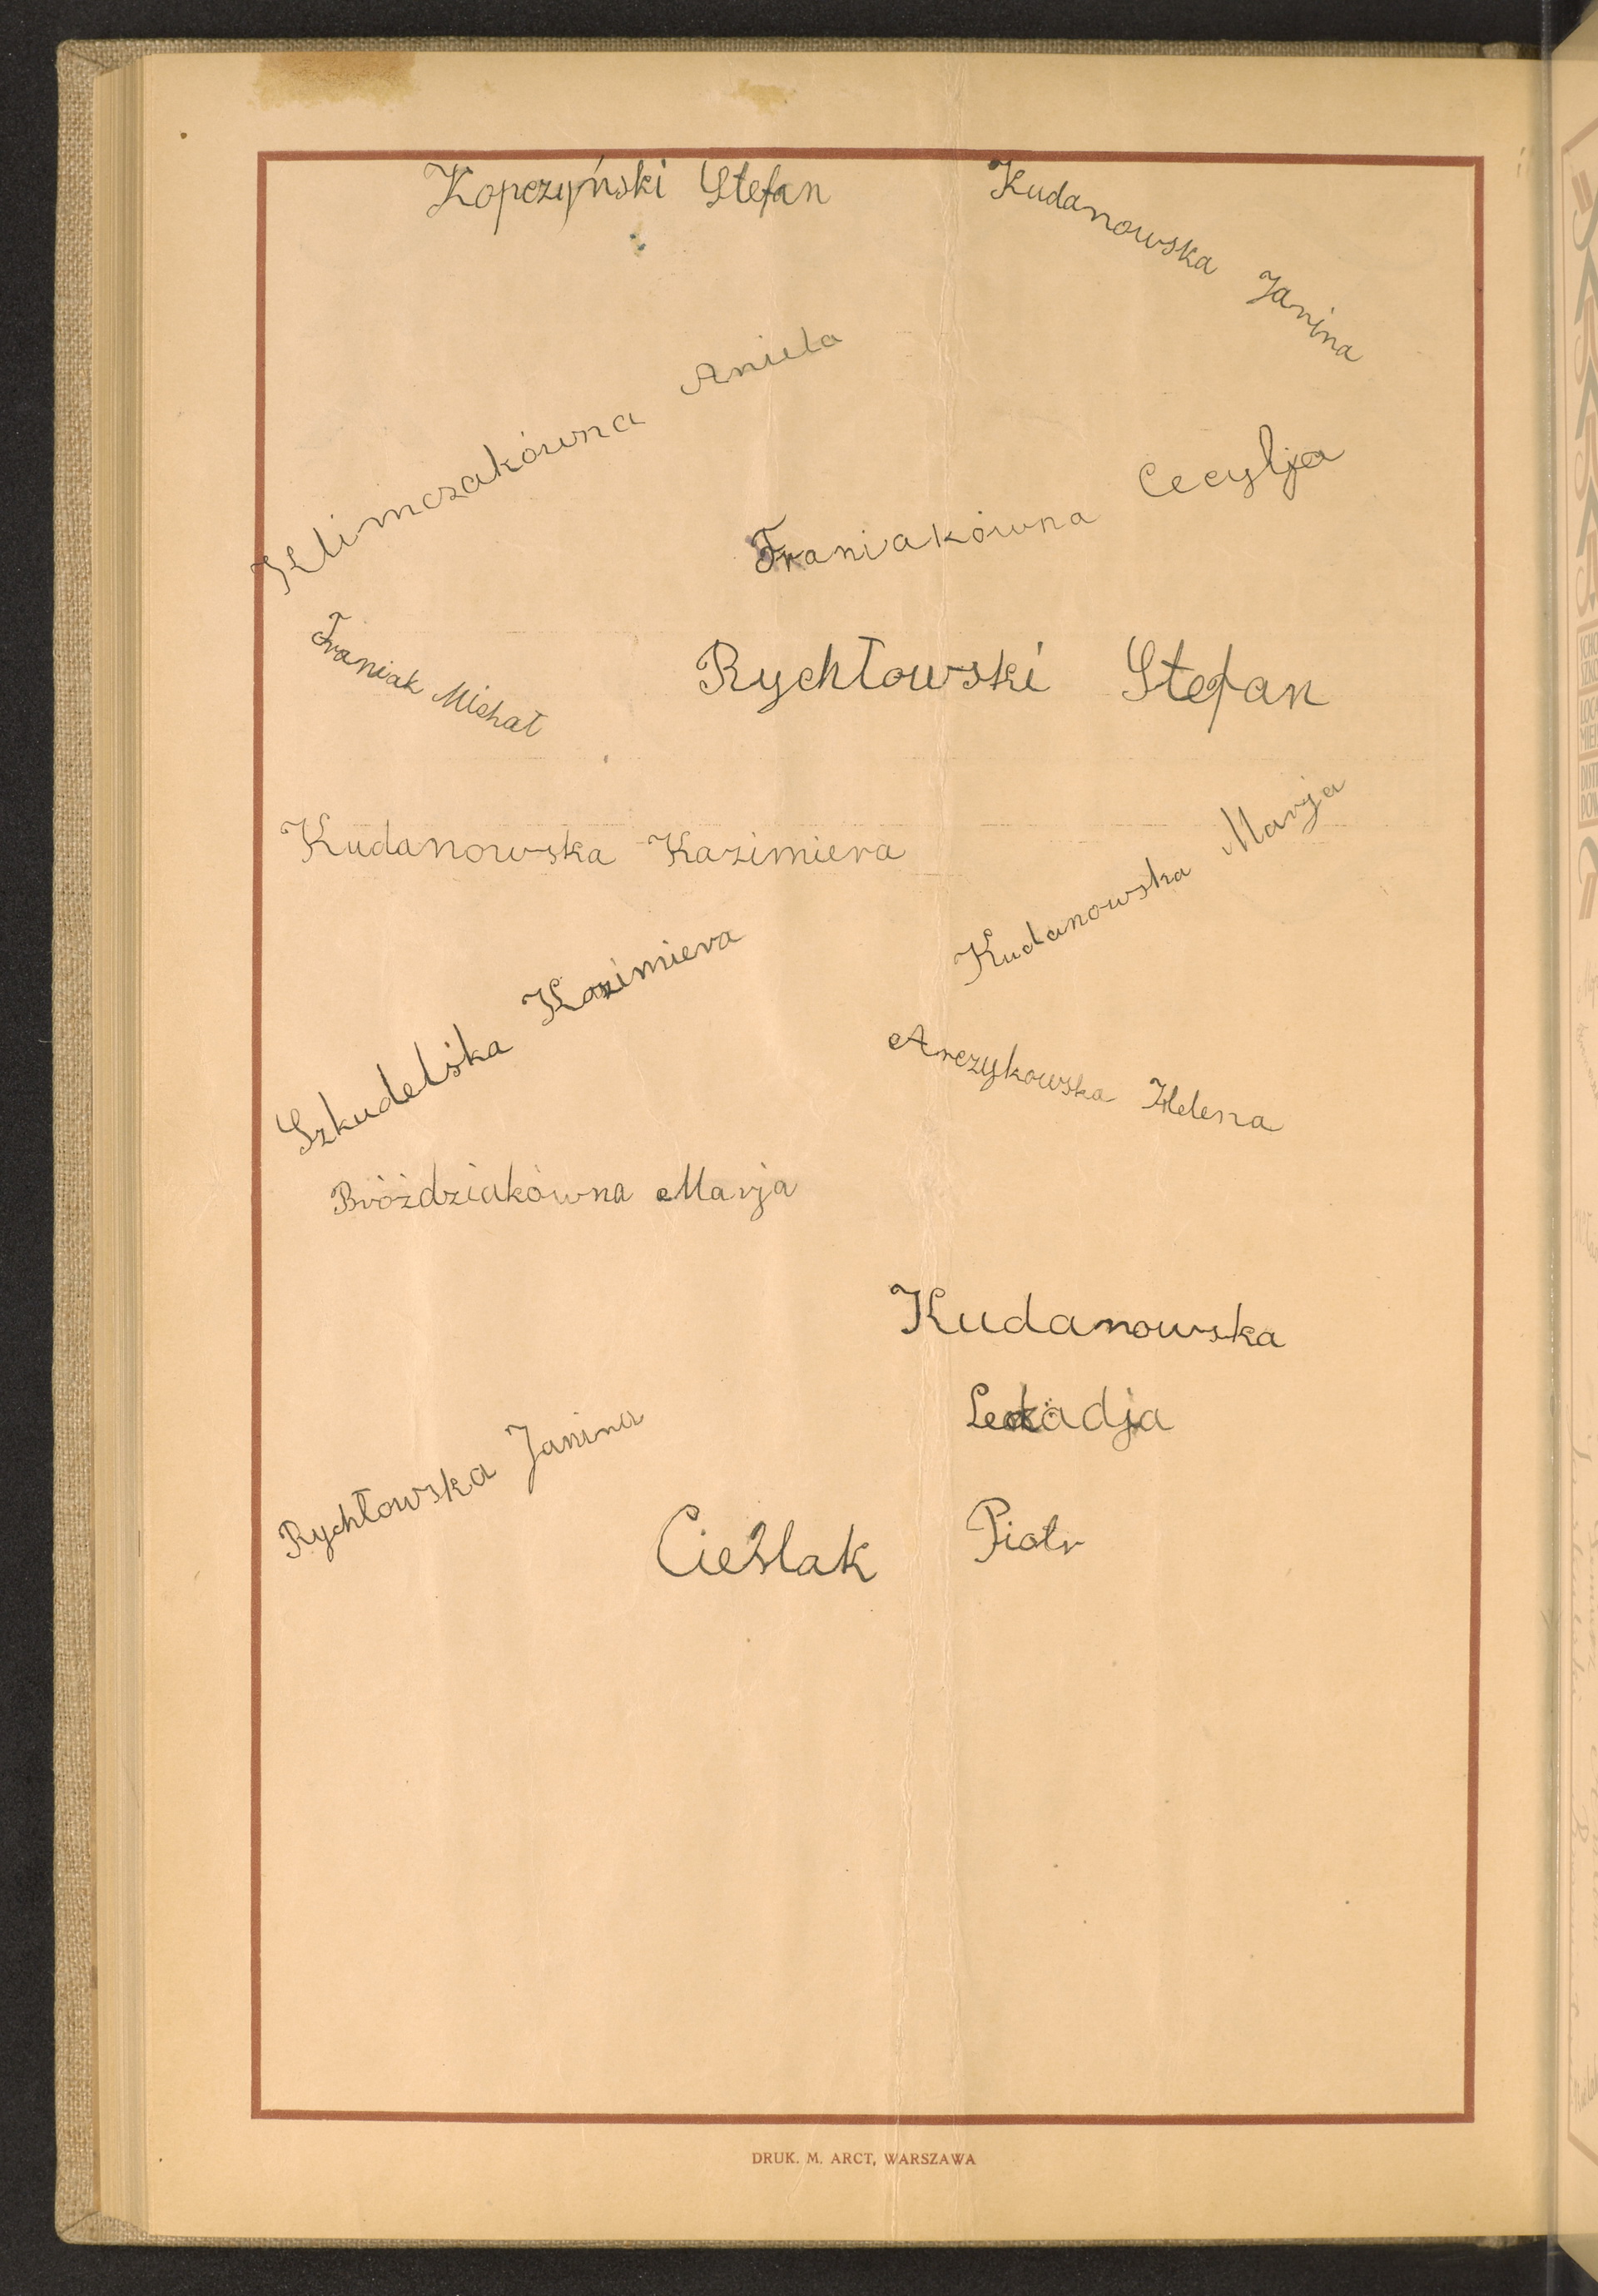 Kopczyński Stefan
Kudanowska Janina
Klimczakówna Aniela
Franiakówna Cecylja
Franiak Michał
Rychłowski Stefan
Kudanowska Kazimiera
Kudanowska Marja
Szkudelska Kazimiera
Arczykowska Helena
Bróździakówna Marja
Kudanowska
Leokadja
Rychłowska Janina
Cieślak Piotr
DRUK. M. ARCT, WARSZAWA